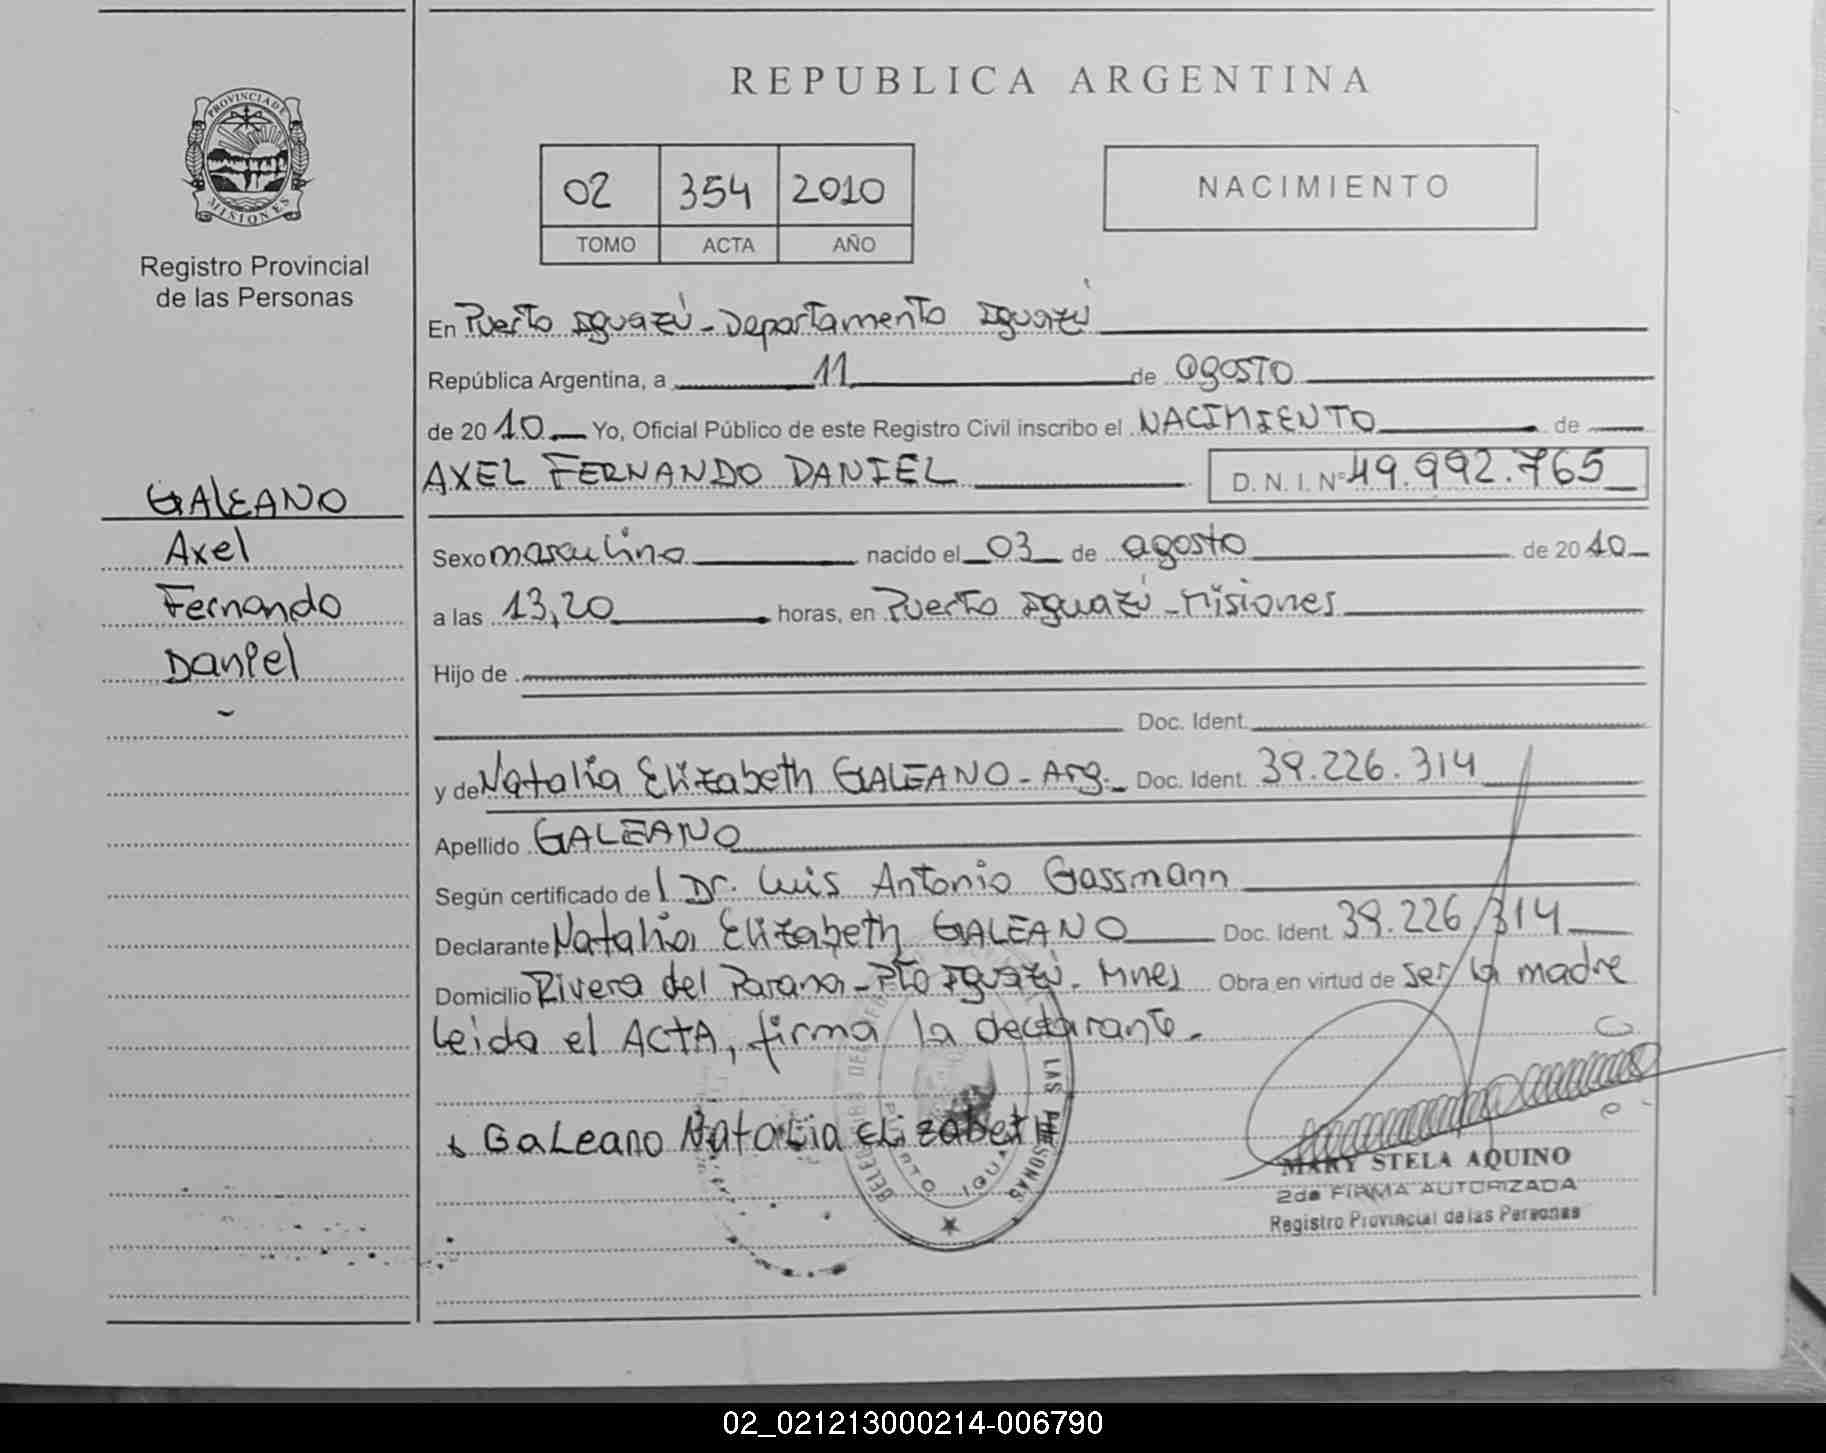 REPUBLICA ARGENTINA
PROVINCIA DE
MISIONES
Registro Provincial
de las Personas
02 354 2010
TOMO ACTA AÑO
NACIMIENTO
GALEANO
Axel
Fernando
Daniel
En Puerto Iguazú - Departamento Iguazú
República Argentina, a 11 de agosto
de 20 10 Yo, Oficial Público de este Registro Civil inscribo el NACIMIENTO de
AXEL FERNANDO DANIEL D. N. I. Nº 49.992.765
Sexo masculino nacido el 03 de agosto de 20 10
a las 13,20 horas, en Puerto Iguazú - Misiones
Hijo de
Doc. Ident.
y de Natalia Elizabeth GALEANO - Arg. Doc. Ident. 39.226.314
Apellido GALEANO
Según certificado de l Dr. Luis Antonio Gassmann
Declarante Natalia Elizabeth GALEANO Doc. Ident. 39.226.314
Domicilio Rivera del Parana - Pto Iguazú. Mnes Obra en virtud de ser la madre
Leida el ACTA, firma la declarante.
Galeano Natalia Elizabeth
LAS PERSONAS
PUERTO IGUAZU
MARY STELA AQUINO
2da FIRMA AUTORIZADA
Registro Provincial de las Personas
02_021213000214-006790